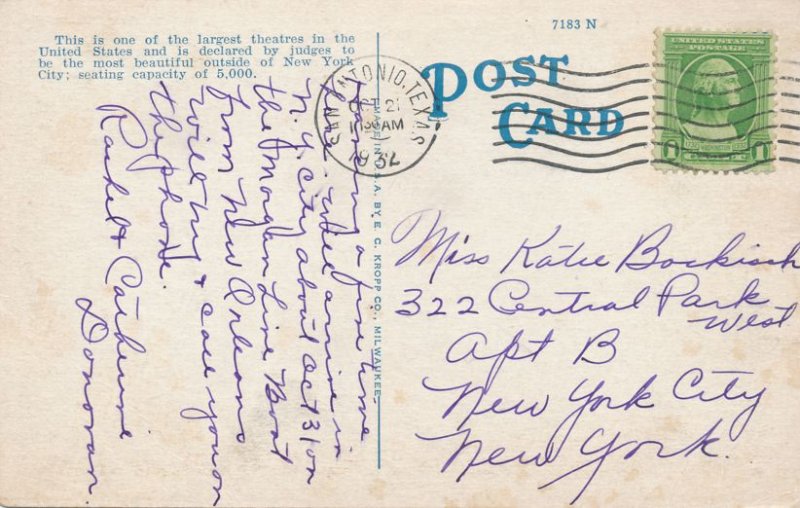 This is one of the largest theatres in the
United States and is declared by judges to
be the most beautiful outside of New York
City; seating capacity of 5,000.
7183 N
POST
CARD
SAN ANTONIO, TEXAS
OCT 21
1932
UNITED STATES
POSTAGE
MADE IN U.S.A. BY E. C. KROPP CO., MILWAUKEE.
Having a fine time
here. Will arrive in
N.Y. City about Oct 31 on
the Morgan Line Boat
from New Orleans
will try & call you on
the phone.
Rachel & Catherine
Donovan.
Miss Katie Bockisch
322 Central Park
West
Apt B
New York City
New York.